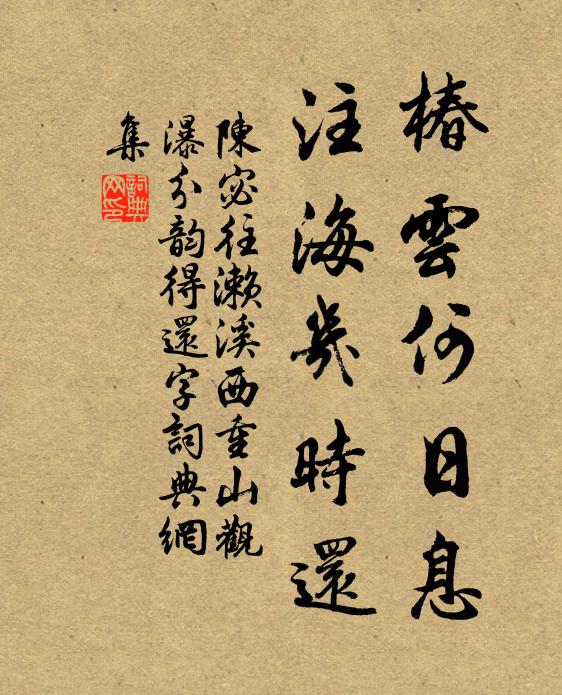 椿雲何日息
注海幾時還
陳宓往濑溪西重山觀
瀑分韵得還字詞典網
集
詞典
网印